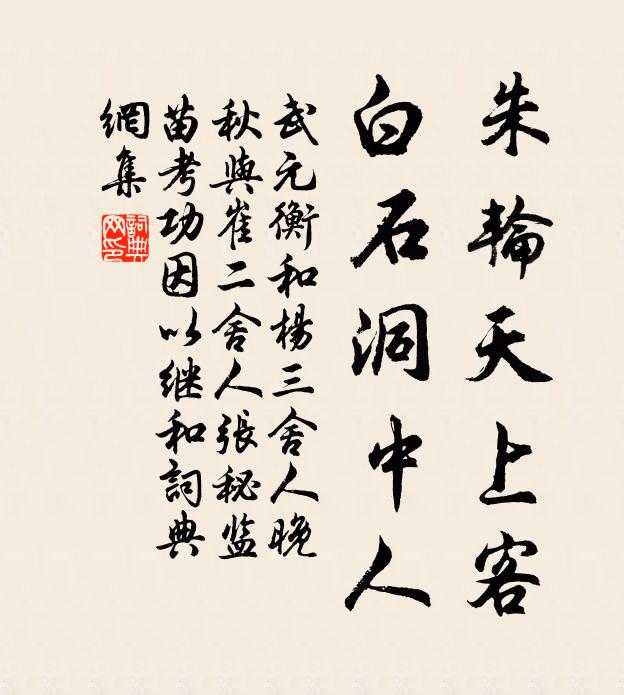 朱輪天上客
白石洞中人
武元衡和楊三舍人晚
秋與崔二舍人張秘监
苗考功因以继和詞典
網集
詞典
网印